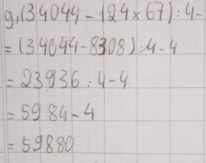 g, (34044 - 124 x 67) : 4 -
= (34044 - 8308) : 4 - 4
= 23936 : 4 - 4
= 5984 - 4
= 59880